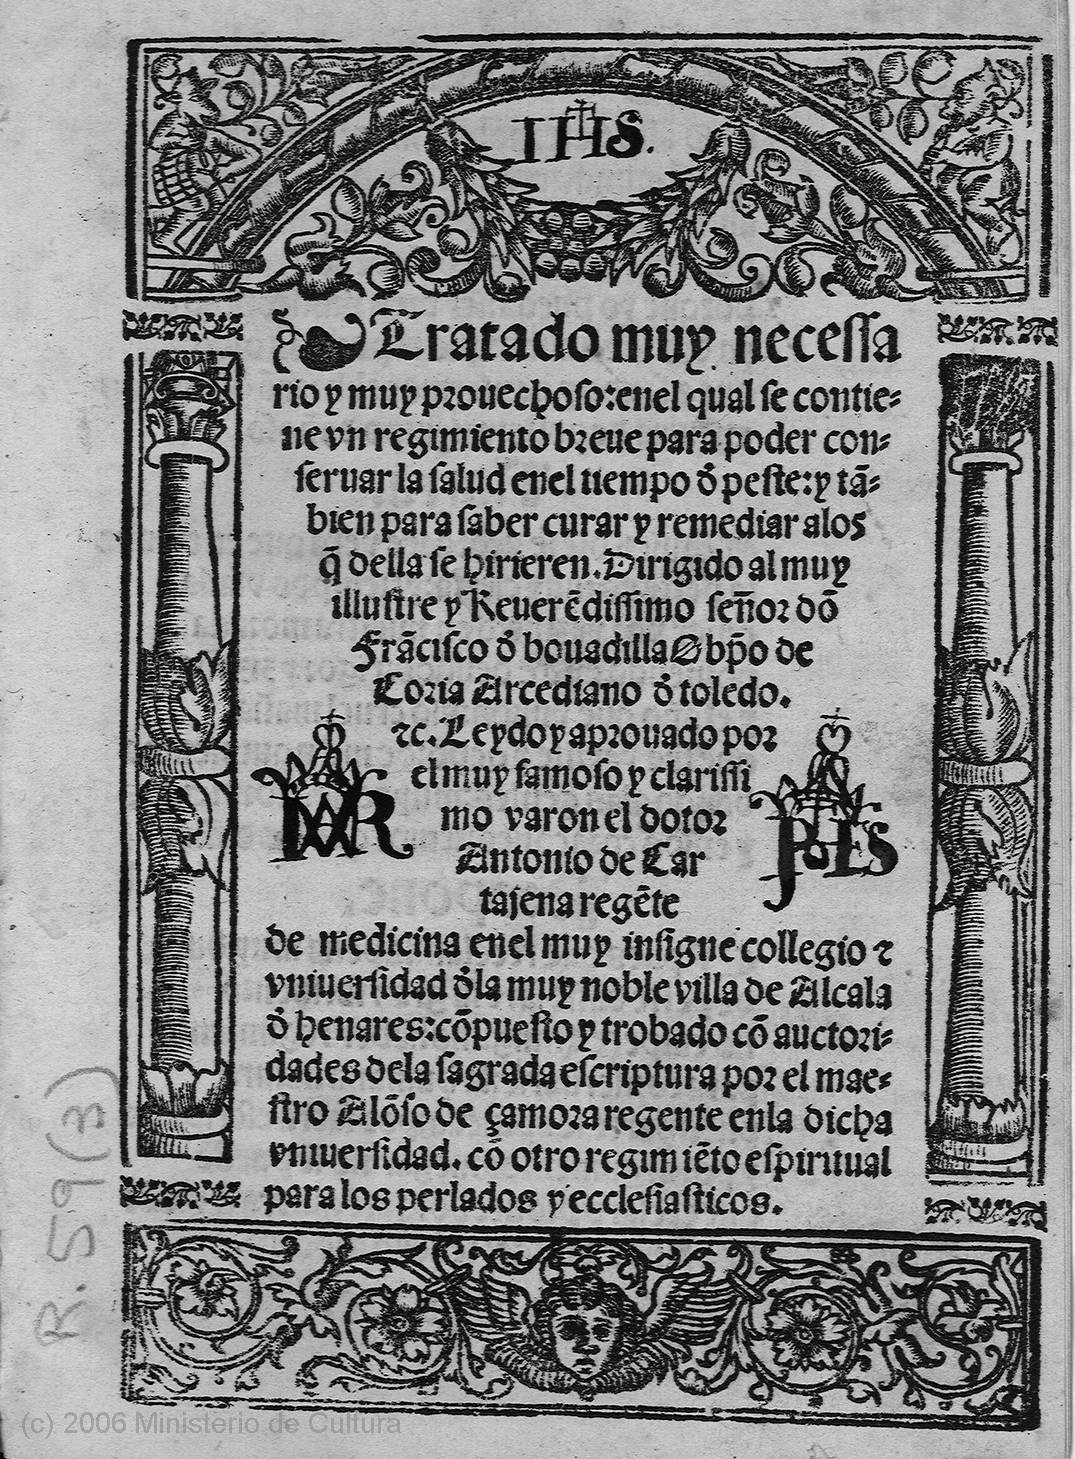 IHS.
Tratado muy necessa
rio y muy prouechoso: enel qual se contie=
ne vn regimiento breue para poder con=
seruar la salud enel tiempo đ peste: y tã=
bien para saber curar y remediar alos
q̃ della se hirieren. Dirigido al muy
illustre y Reuerẽdissimo señor dõ
Frãcisco đ bouadilla Obp̃o de
Coria Arcediano đ toledo.
⁊c. Leydo y aprouado por
el muy famoso y clarissi
mo varon el dotor
Antonio de Car
tajena regẽte
de medicina enel muy insigne collegio ⁊
vniuersidad đla muy noble villa de Alcala
đ henares: cõpuesto y trobado cõ auctori=
dades dela sagrada escriptura por el mae=
stro Alõso de çamora regente enla dicha
vniuersidad. cõ otro regimiẽto espiritual
para los perlados y ecclesiasticos.
R. 59 (3)
(c) 2006 Ministerio de Cultura